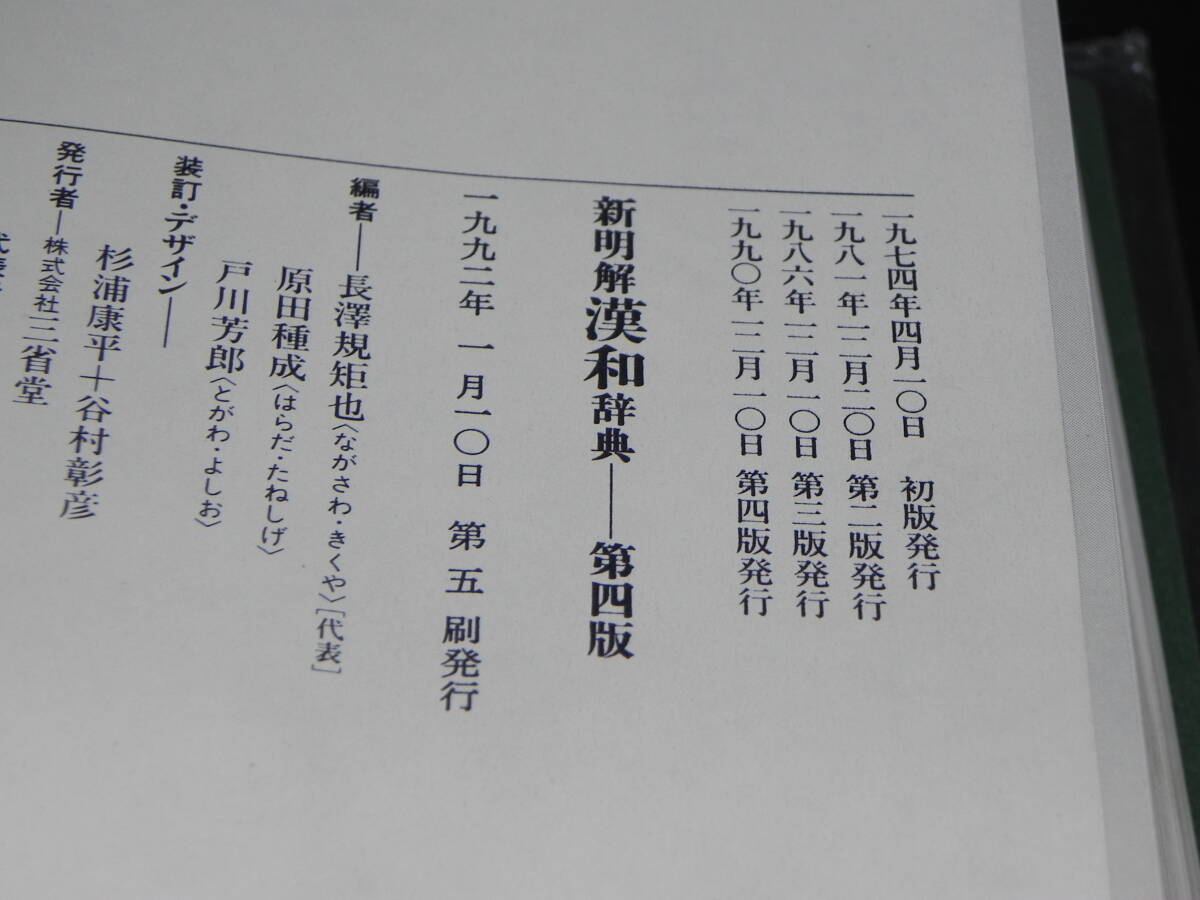 一九七四年四月一〇日 初版発行
一九八一年一二月二〇日 第二版発行
一九八六年一二月一〇日 第三版発行
一九九〇年一二月一〇日 第四版発行
新明解漢和辞典――第四版
一九九二年 一月一〇日 第五刷発行
編者――長澤規矩也〈ながさわ・きくや〉[代表]
原田種成〈はらだ・たねしげ〉
戸川芳郎〈とがわ・よしお〉
装訂・デザイン――
杉浦康平+谷村彰彦
発行者―株式会社三省堂